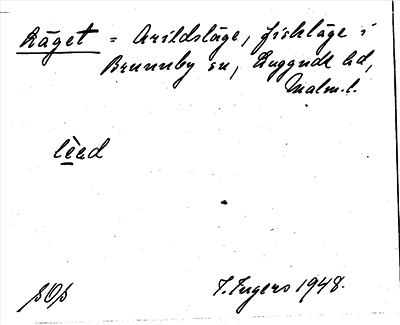 Läget = Arildsläge, fiskläge i
Brunnby sn, Luggude hd,
Malm.l.
lèed
SOS
J. Ingers 1948.